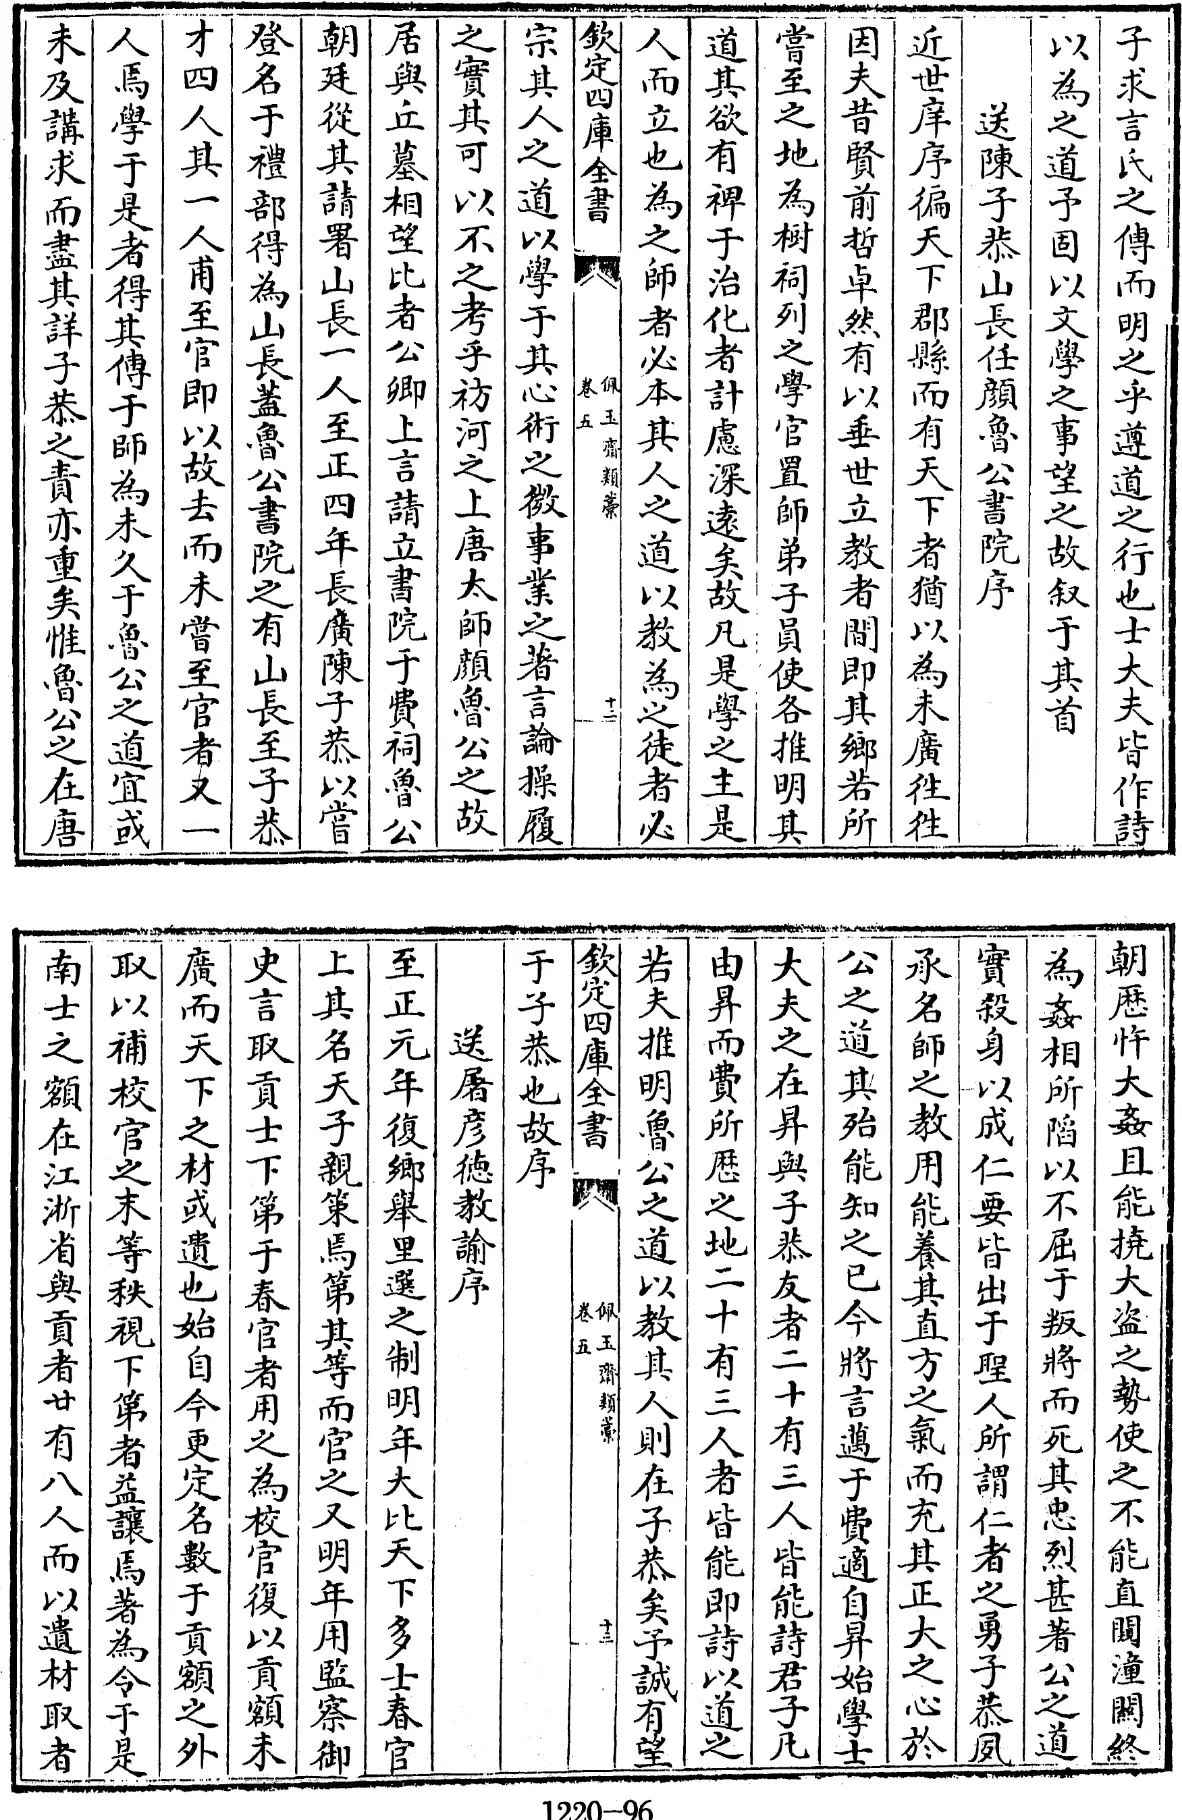 子求言氏之傳而明之乎遵道之行也士大夫皆作詩
以為之道予固以文學之事望之故叙于其首
送陳子恭山長任顔魯公書院序
近世庠序徧天下郡縣而有天下者猶以為未廣徃徃
因夫昔賢前哲卓然有以垂世立教者間即其鄉若所
嘗至之地為樹祠列之學官置師弟子員使各推明其
道其欲有裨于治化者計慮深逺矣故凡是學之主是
人而立也為之師者必本其人之道以教為之徒者必
欽定四庫全書
佩玉齋類藁
卷五
十二
宗其人之道以學于其心術之微事業之著言論操履
之實其可以不之考乎祊河之上唐太師顔魯公之故
居與丘墓相望比者公卿上言請立書院于費祠魯公
朝廷從其請署山長一人至正四年長廣陳子恭以嘗
登名于禮部得為山長葢魯公書院之有山長至子恭
才四人其一人甫至官即以故去而未嘗至官者又一
人焉學于是者得其傳于師為未久于魯公之道宜或
未及講求而盡其詳子恭之責亦重矣惟魯公之在唐
朝歴忤大姦且能撓大盜之勢使之不能直闖潼關終
為姦相所陷以不屈于叛將而死其忠烈甚著公之道
實殺身以成仁要皆出于聖人所謂仁者之勇子恭夙
承名師之教用能養其直方之氣而充其正大之心於
公之道其殆能知之已今將言邁于費適自昇始學士
大夫之在昇與子恭友者二十有三人皆能詩君子凡
由昇而費所歴之地二十有三人者皆能即詩以道之
若夫推明魯公之道以教其人則在子恭矣予誠有望
欽定四庫全書
佩玉齋類藁
卷五
十三
于子恭也故序
送屠彦徳教諭序
至正元年復鄉舉里選之制明年大比天下多士春官
上其名天子親策焉第其等而官之又明年用監察御
史言取貢士下第于春官者用之為校官復以貢額未
廣而天下之材或遺也始自今更定名數于貢額之外
取以補校官之末等秩視下第者益讓焉著為令于是
南士之額在江淛省與貢者廿有八人而以遺材取者
1220-96